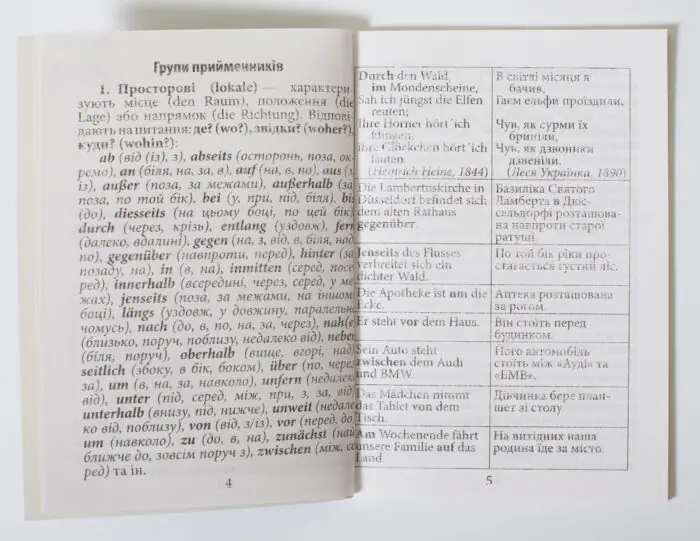 Групи прийменників
1. Просторові (lokale) — характери-
зують місце (den Raum), положення (die
Lage) або напрямок (die Richtung). Відпові-
дають на питання: де? (wo?), звідки? (woher?),
куди? (wohin?):
ab (від (із), з), abseits (осторонь, поза, ок-
ремо), an (біля, на, за, в), auf (на, в, по), aus (з
із), außer (поза, за межами), außerhalb (за
поза, по той бік), bei (у, при, під, біля), bis
(до), diesseits (на цьому боці, по цей бік)
durch (через, крізь), entlang (уздовж), fern
(далеко, вдалині), gegen (на, з, від, в, біля, над
по), gegenüber (навпроти, перед), hinter (за
позаду, на), in (в, на), inmitten (серед, посе
ред), innerhalb (всередині, через, серед, у ме
жах), jenseits (поза, за межами, на іншом
боці), längs (уздовж, у довжину, паралельн
чомусь), nach (до, в, по, на, за, через), nah(e
(близько, поруч, поблизу, недалеко від), neben
(біля, поруч), oberhalb (вище, вгорі, над)
seitlich (збоку, в бік, боком), über (по, через
за), um (в, на, за, навколо), unfern (недалеко
від), unter (під, серед, між, при, з, за, від)
unterhalb (внизу, під, нижче), unweit (недале
ко від, поблизу), von (від, з/із), vor (перед, до)
um (навколо), zu (до, в, на), zunächst (най
ближче до, зовсім поруч з), zwischen (між, се
ред) та ін.
4
Durch den Wald,
im Mondenscheine,
Sah ich jüngst die Elfen
reuten;
Ihre Hörner hört´ich
klingen,
Ihre Glöckchen hört´ich
läuten.
(Heinrich Heine, 1844)
В світлі місяця я
бачив,
Гаєм ельфи проїздили,
Чув, як сурми їх
бриніли,
Чув, як дзвоники
дзвеніли.
(Леся Українка, 1890)
Die Lambertuskirche in
Düsseldorf befindet sich
dem alten Rathaus
gegenüber.
Базиліка Святого
Ламберта в Дюс-
сельдорфі розташова-
на навпроти старої
ратуші.
Jenseits des Flusses
verbreitet sich ein
dichter Wald.
По той бік ріки про-
стягається густий ліс.
Die Apotheke ist um die
Ecke.
Аптека розташована
за рогом.
Er steht vor dem Haus.
Він стоїть перед
будинком.
Sein Auto steht
zwischen dem Audi
und BMW.
Його автомобіль
стоїть між «Ауді» та
«БМВ».
Das Mädchen nimmt
das Tablet von dem
Tisch.
Дівчинка бере план-
шет зі столу.
Am Wochenende fährt
unsere Familie auf das
Land.
На вихідних наша
родина їде за місто.
5